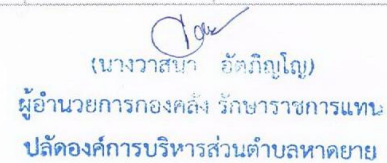 (นางวาสนา อัตภิญโญ)
ผู้อำนวยการกองคลัง รักษาราชการแทน
ปลัดองค์การบริหารส่วนตำบลหาดยาย